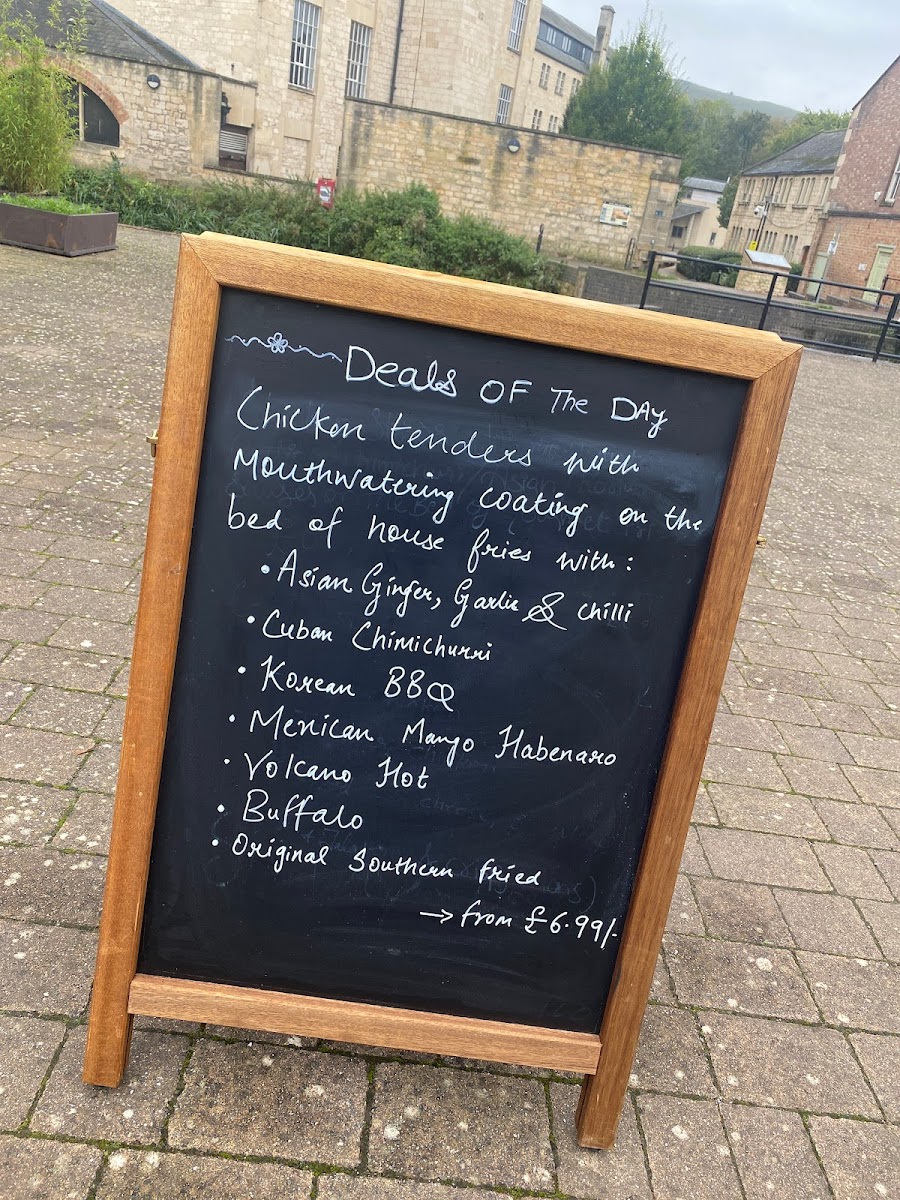 Deals OF The DAy
Chicken tenders with
Mouthwatering coating on the
bed of house fries with:
• Asian Ginger, Garlic & chilli
• Cuban Chimichurri
• Korean BBQ
• Mexican Mango Habenaro
• Volcano Hot
• Buffalo
• Original Southern fried
→ from £6.99/-